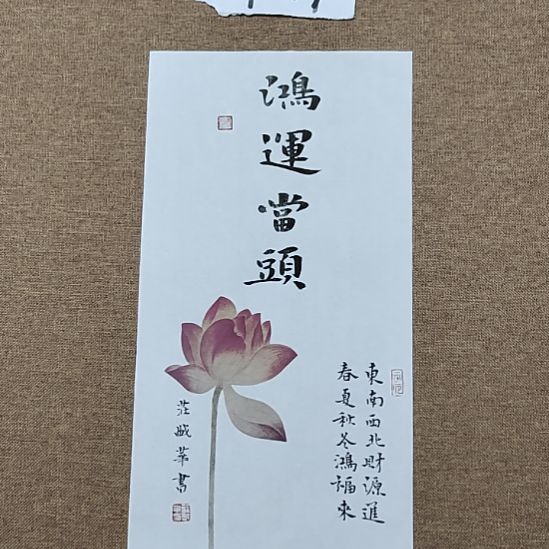 鴻運當頭
東南西北財源進
春夏秋冬鴻福來